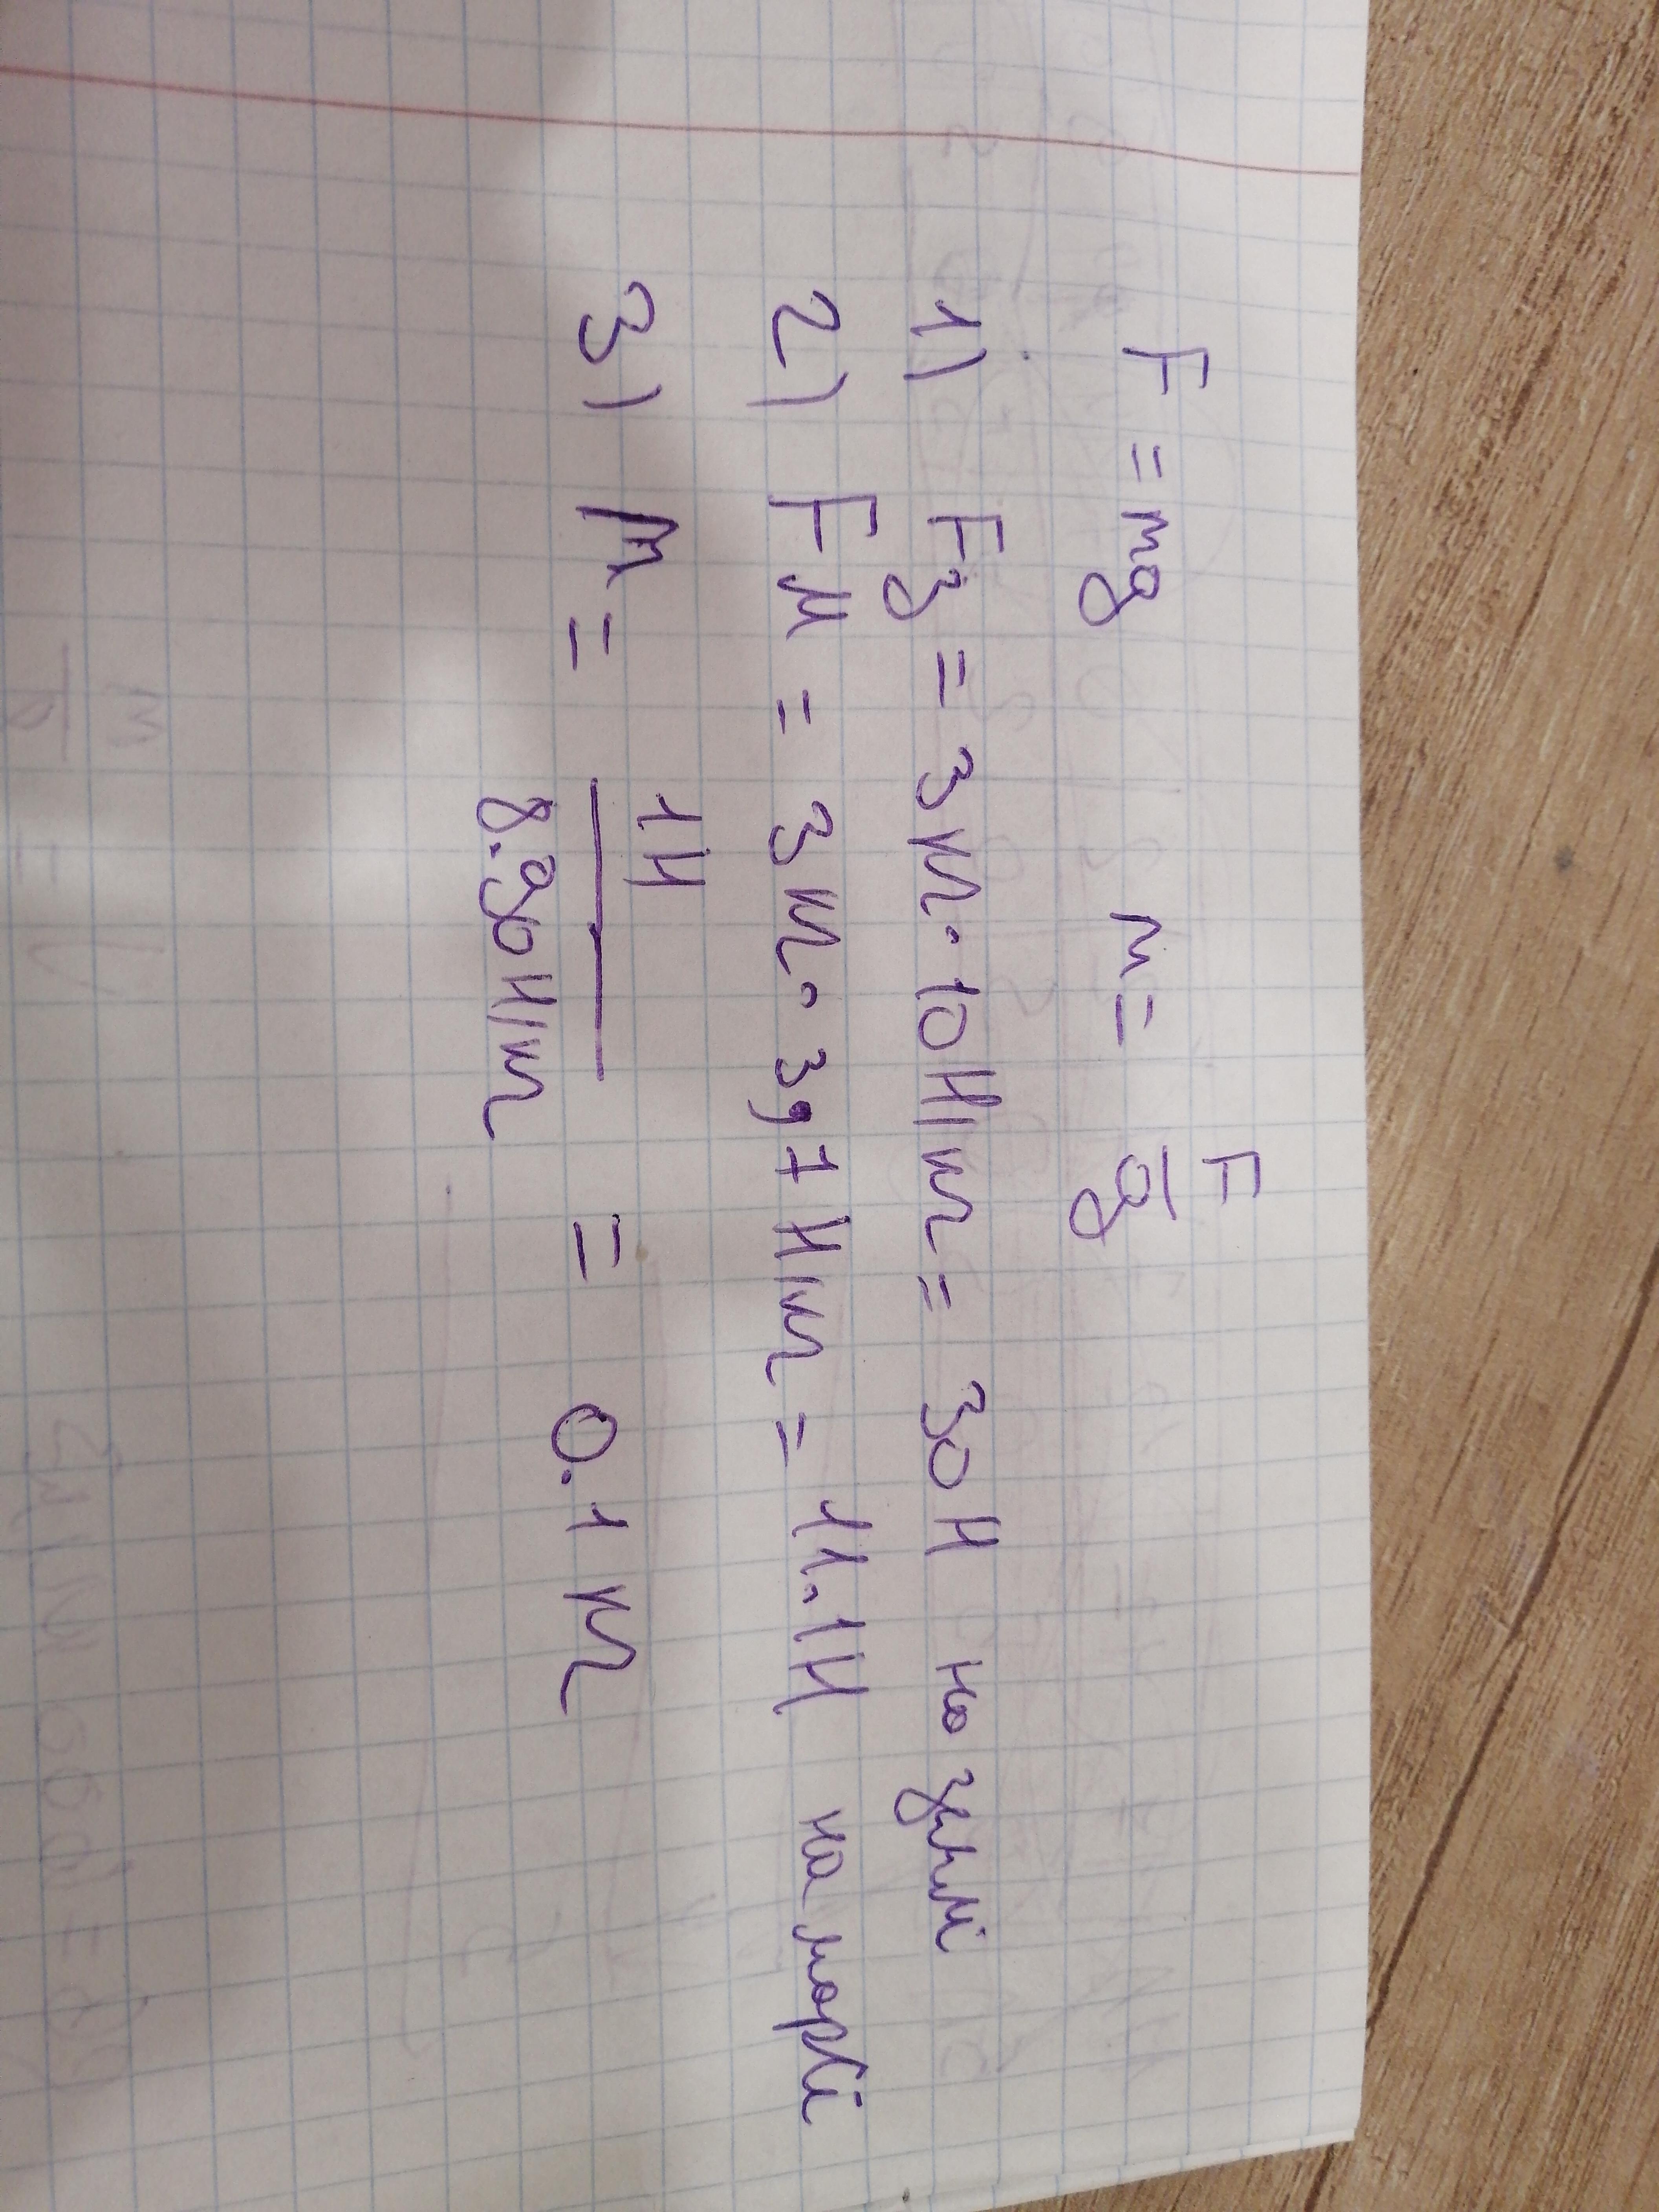 F = mg   m = F/g
1) Fз = 3 кг · 10 Н/кг = 30 Н на землі
2) Fм = 3 кг · 3,7 Н/кг = 11.1 Н на марсі
3) m = 1Н / 8.8 Н/кг = 0.1 кг